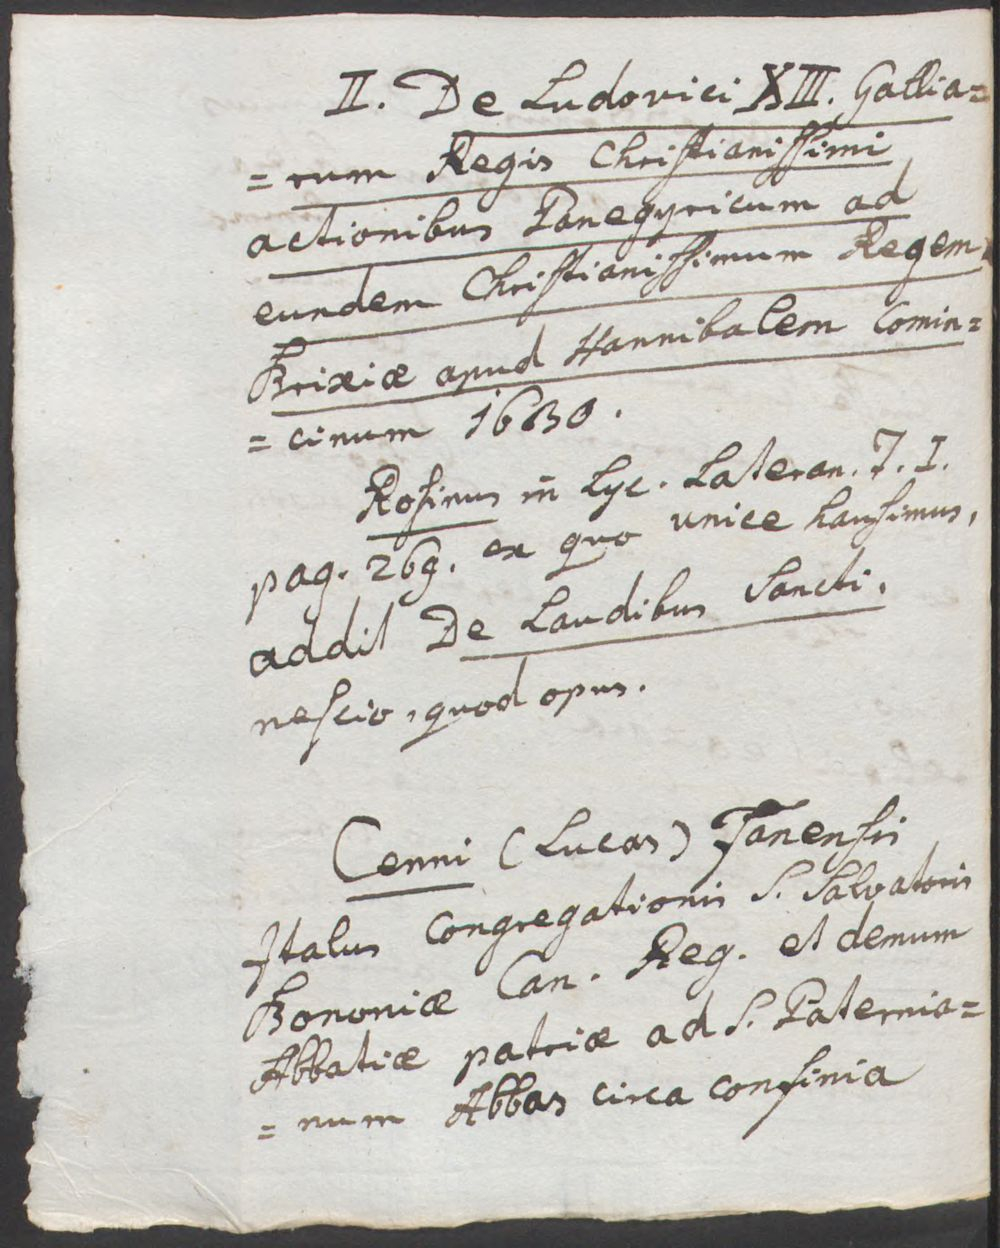 II. De Ludovici XIII. Gallia=
=rum Regis Christianissimi
actionibus Panegyricum ad
eundem Christianissimum Regem
Brixiæ apud Hannibalem Comin=
=cinum 1630.
Rosinus in Lyc. Lateran. T. I.
pag. 269. ex quo unice hausimus,
addit De Laudibus Sancti.
nescio, quod opus.
Cenni (Lucas) Fanensis
Italus Congregationis S. Salvatoris
Bononiæ Can. Reg. et demum
Abbatiæ patriæ ad S. Paternia=
=num Abbas circa confinia